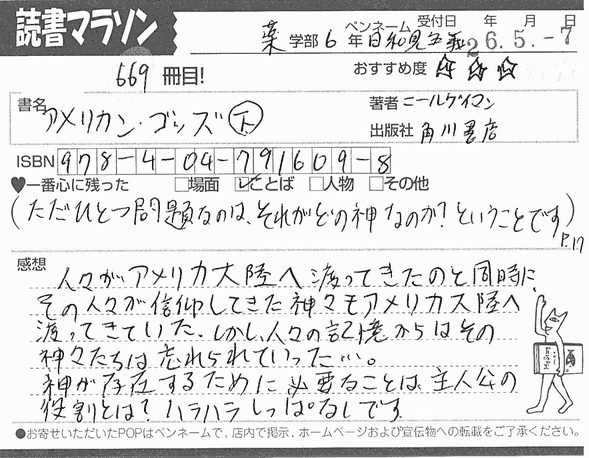 読書マラソン
薬 学部 6 年 ペンネーム 日和見主義 受付日 年 月 日
26.5.-7
669 冊目!
おすすめ度 ☆☆☆
書名 アメリカン・ゴッズ 下
著者 ニールゲイマン
出版社 角川書店
ISBN 978-4-04-791609-8
♥一番心に残った □場面 ☑ことば □人物 □その他
(ただひとつ問題なのは、それがどの神なのか?ということです)
P.17
感想
人々がアメリカ大陸へ渡ってきたのと同時に、
その人々が信仰してきた神々もアメリカ大陸へ
渡ってきていた、しかし、人々の記憶からはその
神々たちは忘れられていった…。
神が存在するために必要なことは、主人公の
役割とは?ハラハラしっぱなしです
●お寄せいただいたPOPはペンネームで、店内で掲示、ホームページおよび宣伝物への転載をご了承ください。